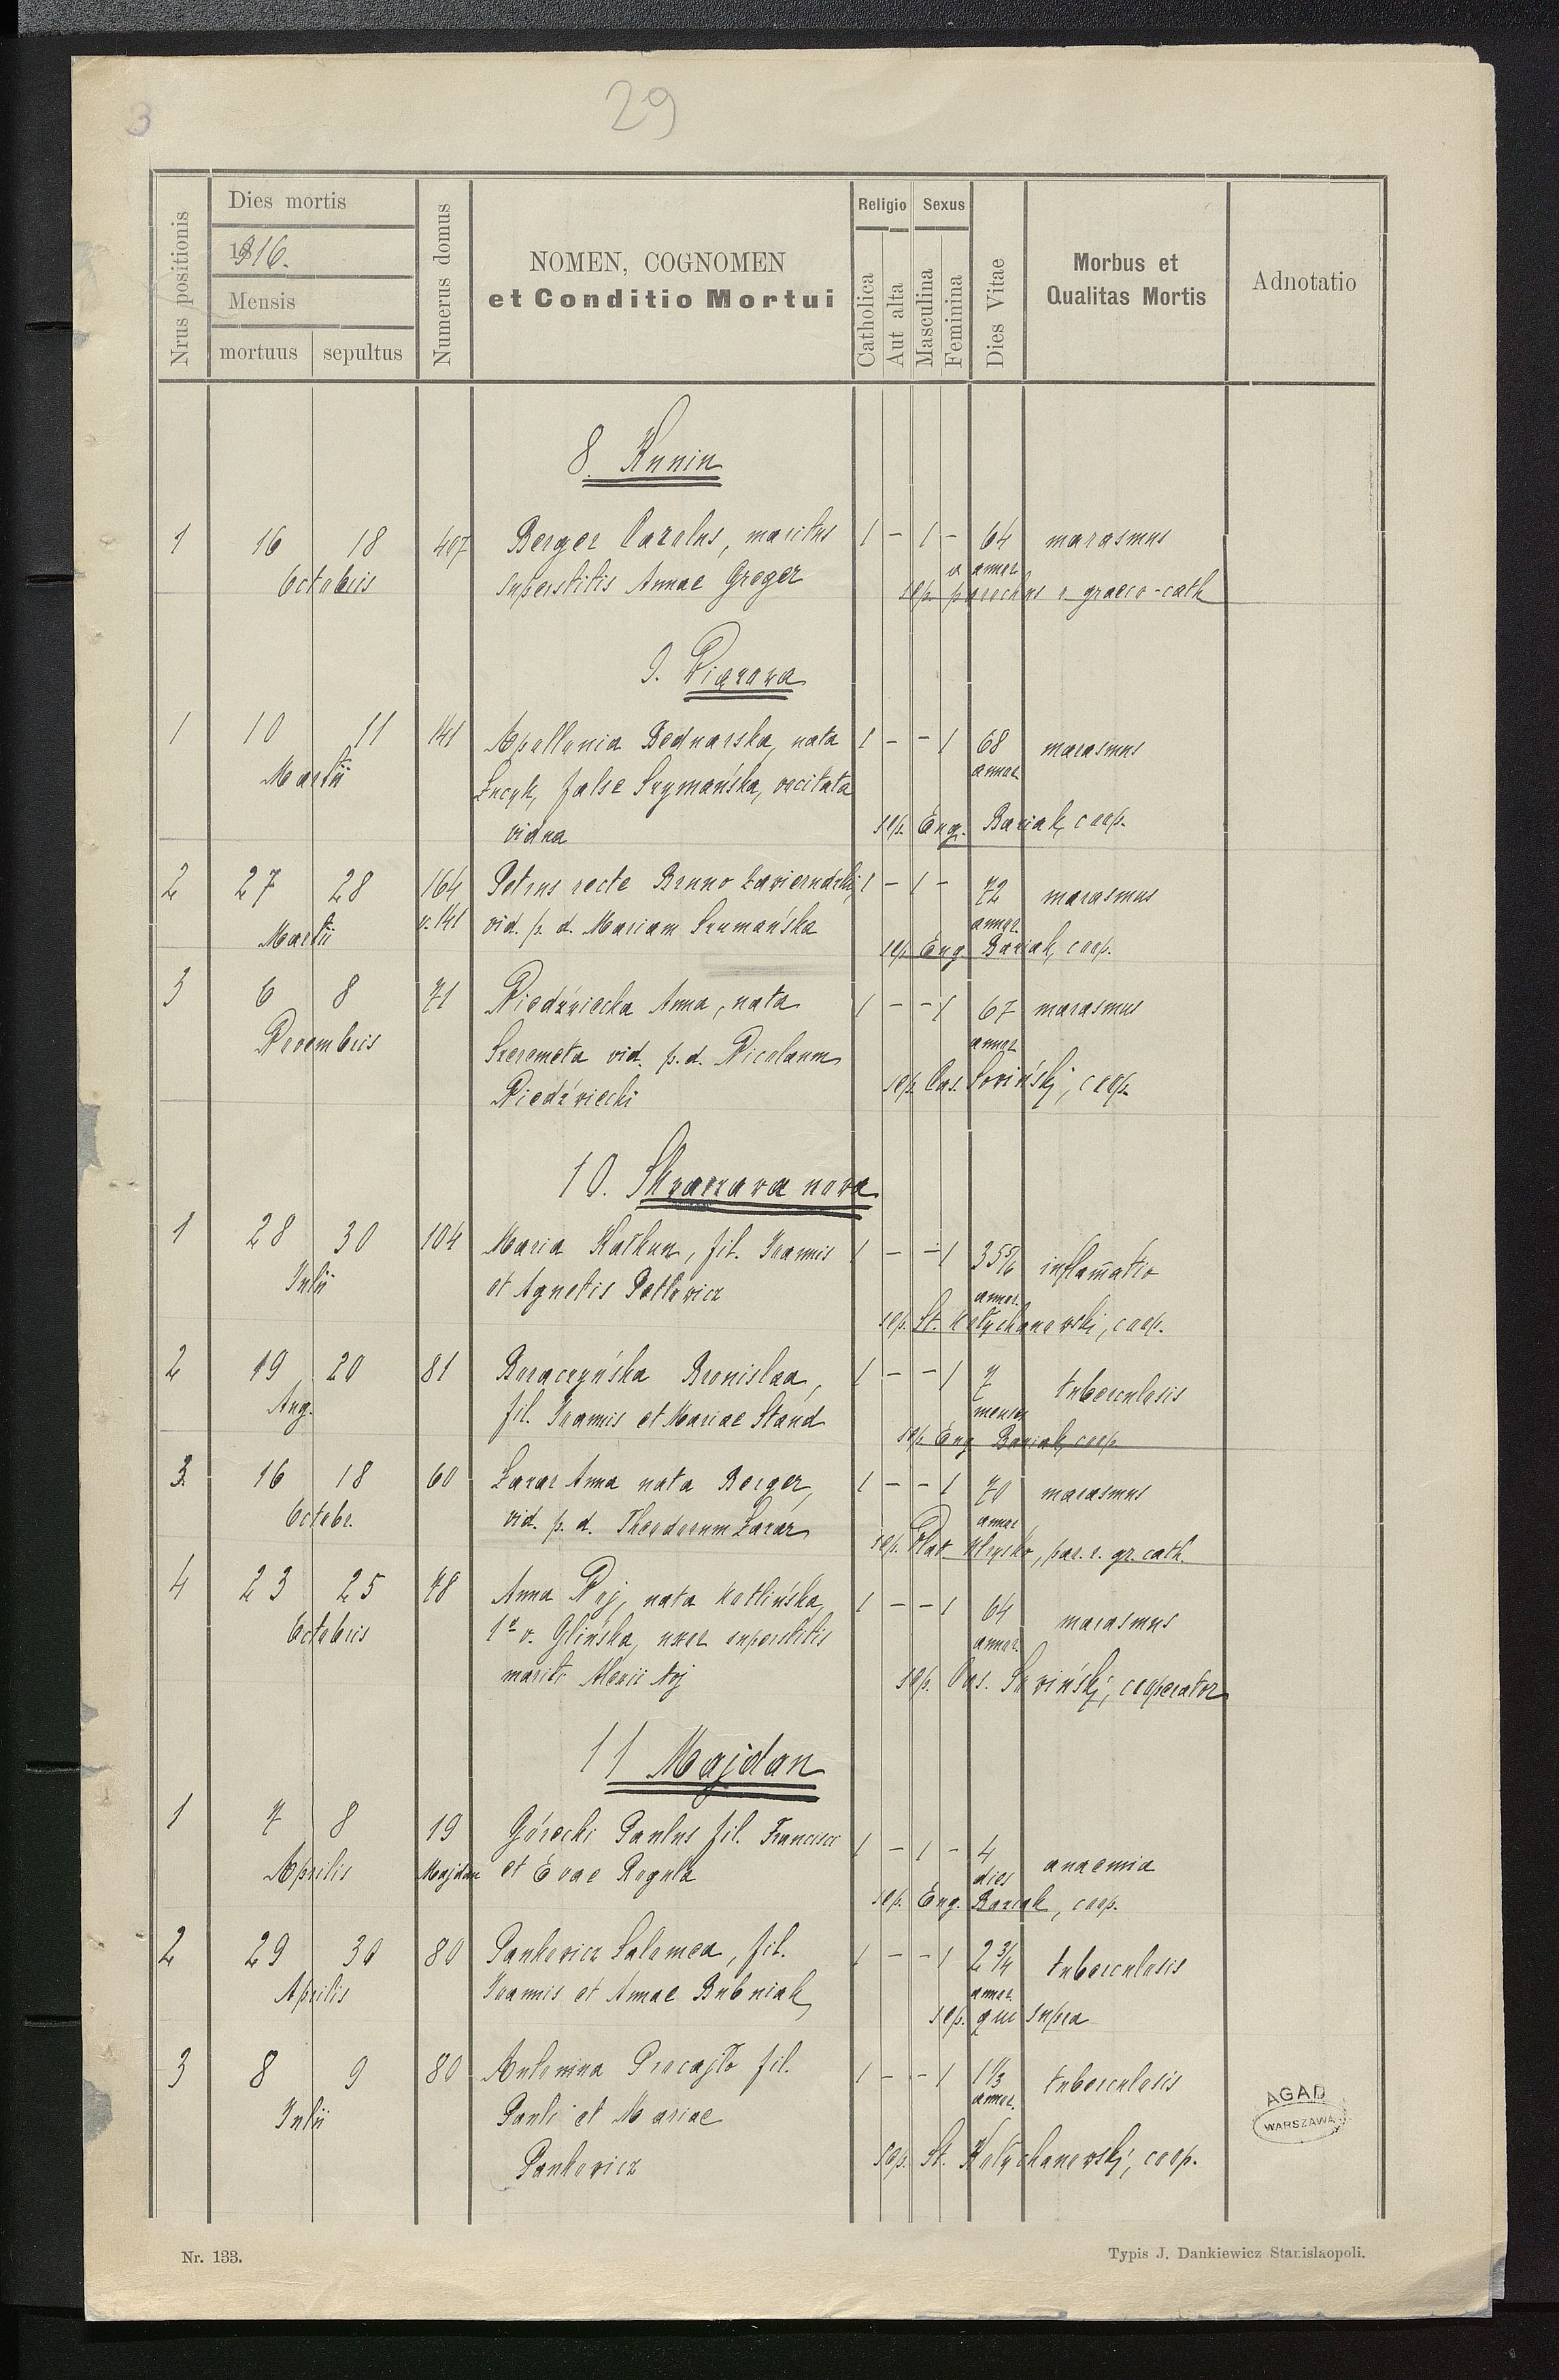 3
29
Nrus positionis
Dies mortis
1916.
Mensis
mortuus sepultus
Numerus domus
NOMEN, COGNOMEN
et Conditio Mortui
Religio Sexus
Catholica
Aut alta
Masculina
Feminina
Dies Vitae
Morbus et
Qualitas Mortis
Adnotatio
8. Kunin
1 16 18 407 Berger Carolus, maritus 1 - 1 - 64 marasmus
Octobris superstitis Annae Greger annor.
sep. parochus r. graeco-cath
9. Piazowa
1 10 11 141 Apollonia Bednarska, nata 1 - - 1 68 marasmus
Martii Łucyk, false Szymańska, vocitata annor.
vidua sep. Eug. Baziak, coop.
2 27 28 164 Petrus recte Bruno Zawierudzki, 1 - 1 - 72 marasmus
Martii v. 141 vid. p. d. Mariam Szumańska annor.
sep. Eug. Baziak, coop.
3 6 8 71 Niedźwiecka Anna, nata 1 - - 1 67 marasmus
Novembris Szeremeta vid. p. d. Nicolaum annor.
Niedźwiecki sep. Cas. Łowiński, coop.
10. Skwarzawa nova
1 28 30 104 Maria Kałkun, fil. Joannis 1 - - 1 35 5/6 inflam̄atio
Julii et Agnetis Petlowicz annor.
sep. St. Kołychanowski, coop.
2 19 20 81 Boraczyńska Bronislaa, 1 - - 1 7 tuberculosis
Aug. fil. Joannis et Mariae Stand menses
sep. Eug. Baziak, coop.
3. 16 18 60 Łazar Anna nata Berger, 1 - - 1 70 marasmus
Octobr. vid. p. d. Theodorum Łazar annor.
sep. par. r. gr. cath.
4 23 25 78 Anna nata Kotlińska, 1 - - 1 64 marasmus
Octobris 1º v. Glińska, uxor superstitis annor.
mariti Alexii sep. Cas. cooperator
11 Majdan
1 7 8 19 Górecki Paulus fil. Francisci 1 - 1 - 4 anaemia
Aprilis Majdan et Evae Roguła dies
sep. Eug. Baziak, coop.
2 29 30 80 Pankowicz Salomea, fil. 1 - - 1 2 3/4 tuberculosis
Aprilis Joannis et Annae Bubniak, annor.
sep. qui supra
3 8 9 80 Antonina Procajło fil. 1 - - 1 1 1/3 tuberculosis
Julii Pauli et Mariae annor.
Pankowicz sep. St. Kołychanowski, coop.
AGAD
WARSZAWA
Nr. 133.
Typis J. Dankiewicz Stanislaopoli.